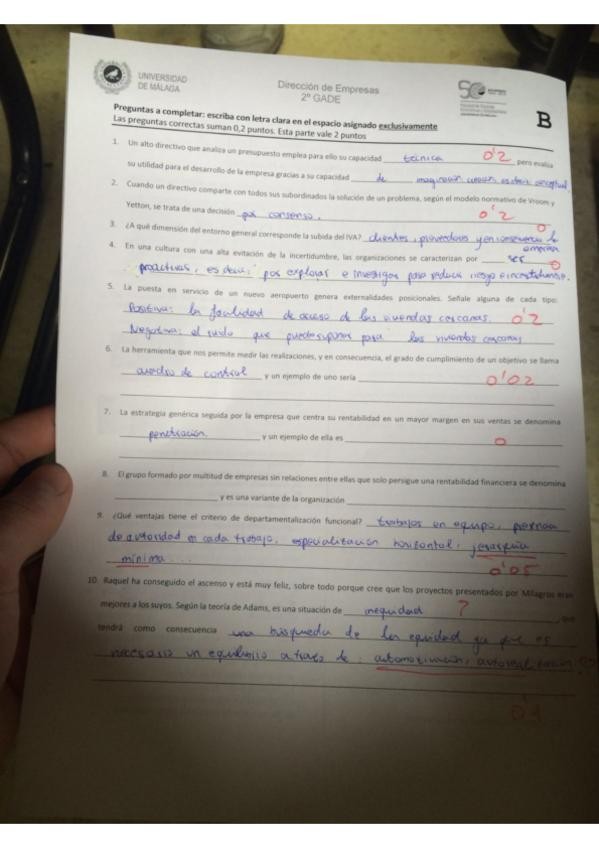 UNIVERSIDAD
DE MÁLAGA
Dirección de Empresas
2º GADE
B
Preguntas a completar: escriba con letra clara en el espacio asignado exclusivamente
Las preguntas correctas suman 0,2 puntos. Esta parte vale 2 puntos
1. Un alto directivo que analiza un presupuesto emplea para ello su capacidad técnica 0'2, pero evalúa
su utilidad para el desarrollo de la empresa gracias a su capacidad de imaginación, conceptual
2. Cuando un directivo comparte con todos sus subordinados la solución de un problema, según el modelo normativo de Vroom y
Yetton, se trata de una decisión por consenso. 0'2
3. ¿A qué dimensión del entorno general corresponde la subida del IVA? clientes, proveedores y en consecuencia la empresa 0
4. En una cultura con una alta evitación de la incertidumbre, las organizaciones se caracterizan por ser
proactivas, es decir, por explorar e investigar para reducir riesgo e incertidumbre. 0
5. La puesta en servicio de un nuevo aeropuerto genera externalidades posicionales. Señale alguna de cada tipo:
Positiva: la facilidad de acceso de las viviendas cercanas. 0'2
Negativa: el ruido que puede suponer para las viviendas cercanas
6. La herramienta que nos permite medir las realizaciones, y en consecuencia, el grado de cumplimiento de un objetivo se llama
cuadro de control y un ejemplo de uno sería 0'02
7. La estrategia genérica seguida por la empresa que centra su rentabilidad en un mayor margen en sus ventas se denomina
penetración y un ejemplo de ella es 0
8. El grupo formado por multitud de empresas sin relaciones entre ellas que solo persigue una rentabilidad financiera se denomina
y es una variante de la organización
9. ¿Qué ventajas tiene el criterio de departamentalización funcional? trabajos en equipo, personas
de autoridad en cada trabajo, especialización horizontal, jerarquía
mínima... 0'05
10. Raquel ha conseguido el ascenso y está muy feliz, sobre todo porque cree que los proyectos presentados por Milagros eran
mejores a los suyos. Según la teoría de Adams, es una situación de inequidad ?, que
tendrá como consecuencia una búsqueda de la equidad ya que es
necesario un equilibrio a través de: automotivación, autorealización ??